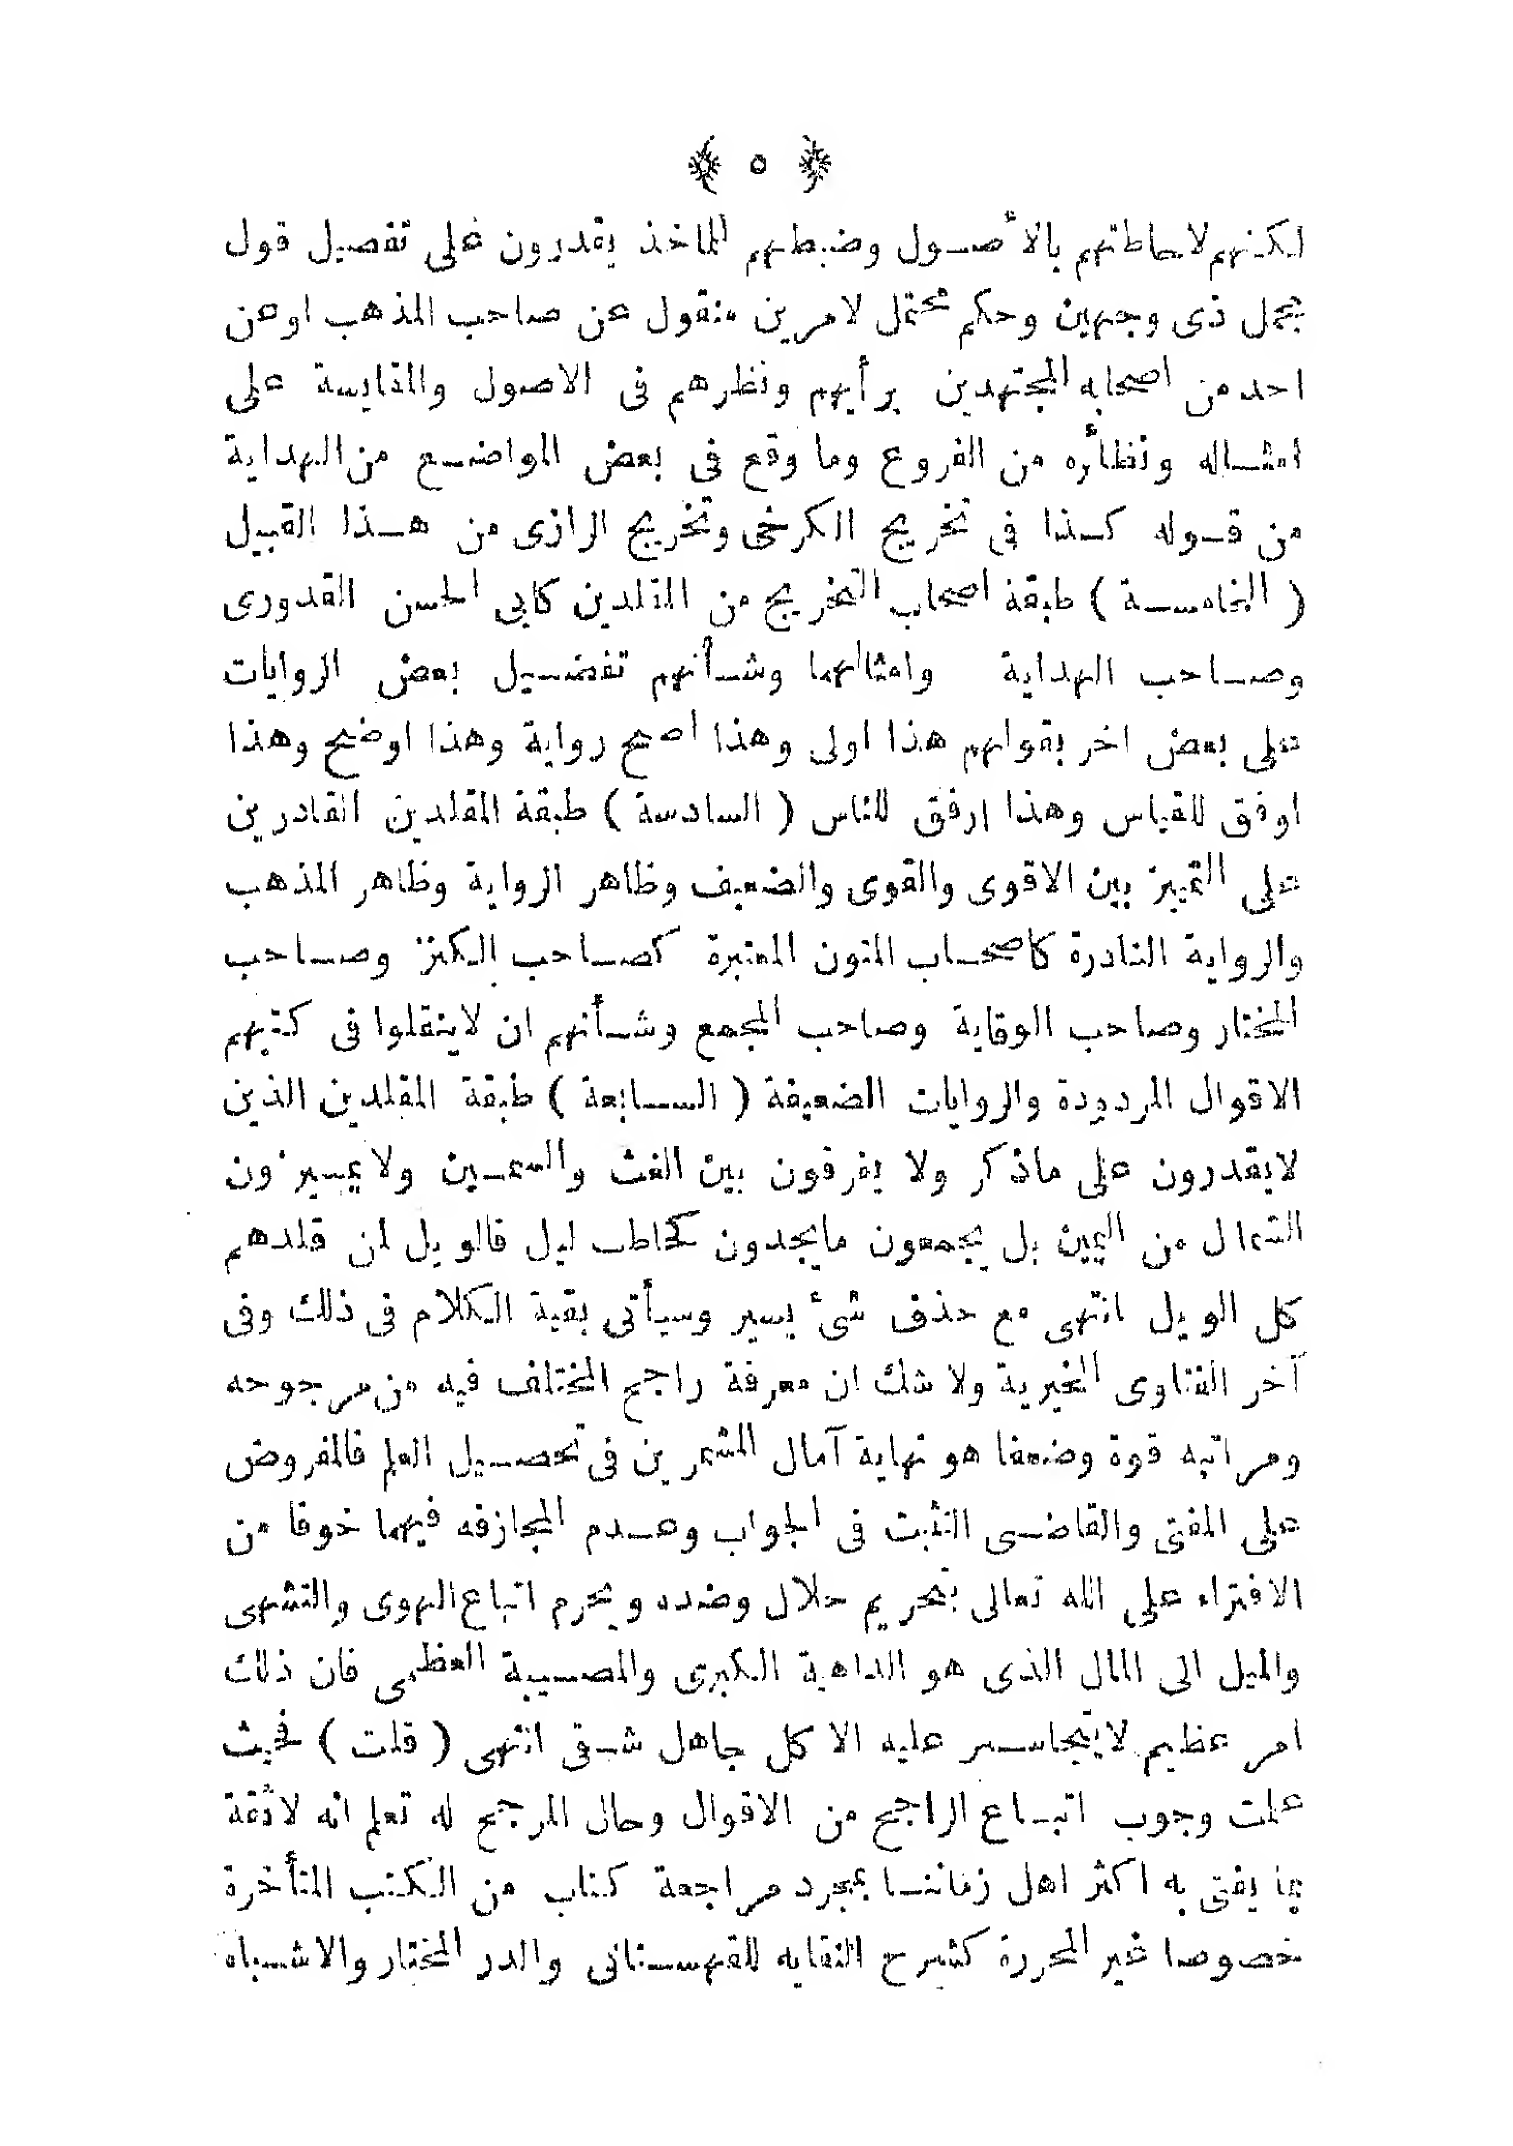 ﴿ ٥ ﴾
لكنهم لاحاطتهم بالأصول وضبطهم للماخذ يقدرون على تفصيل قول
مجمل ذى وجهين وحكم محتمل لامرين منقول عن صاحب المذهب اوعن
احد من اصحابه المجتهدين برأيهم ونظرهم فى الاصول والمقايسة على
امثاله ونظائره من الفروع وما وقع فى بعض المواضع من الهداية
من قوله كذا فى تخريج الكرخى وتخريج الرازى من هذا القبيل
( الخامسة ) طبقة اصحاب التخريج من المقلدين كابى الحسن القدورى
وصاحب الهداية وامثالهما وشأنهم تفضيل بعض الروايات
على بعض اخر بقولهم هذا اولى وهذا اصح رواية وهذا اوضح وهذا
اوفق للقياس وهذا ارفق للناس ( السادسة ) طبقة المقلدين القادرين
على التمييز بين الاقوى والقوى والضعيف وظاهر الرواية وظاهر المذهب
والرواية النادرة كاصحاب المتون المعتبرة كصاحب الكنز وصاحب
المختار وصاحب الوقاية وصاحب المجمع وشأنهم ان لاينقلوا فى كتبهم
الاقوال المردودة والروايات الضعيفة ( السابعة ) طبقة المقلدين الذين
لايقدرون على ماذكر ولا يفرقون بين الغث والسمين ولايميزون
الشمال من اليمين بل يجمعون مايجدون كحاطب ليل فالويل لمن قلدهم
كل الويل انتهى مع حذف شئ يسير وسيأتى بقية الكلام فى ذلك وفى
آخر الفتاوى الخيرية ولا شك ان معرفة راجح المختلف فيه من مرجوحه
ومراتبه قوة وضعفا هو نهاية آمال المشمرين فى تحصيل العلم فالمفروض
على المفتى والقاضى التثبت فى الجواب وعدم المجازفه فيهما خوفا من
الافتراء على الله تعالى بتحريم حلال وضده ويحرم اتباع الهوى والتشهى
والميل الى المال الذى هو الداهية الكبرى والمصيبة العظمى فان ذلك
امر عظيم لايتجاسر عليه الا كل جاهل شقى انتهى ( قلت ) فحيث
علمت وجوب اتباع الراجح من الاقوال وحال المرجح له تعلم انه لاثقة
بما يفتى به اكثر اهل زماننا بمجرد مراجعة كتاب من الكتب المتأخرة
خصوصا غير المحررة كشرح النقايه للقهستانى والدر المختار والاشباه